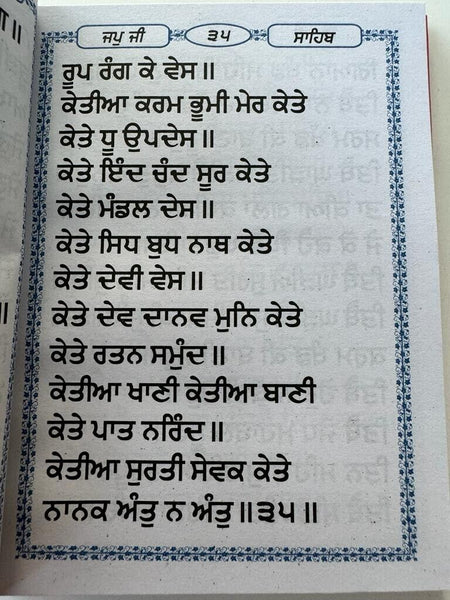 ਜਪੁ ਜੀ ੩੫ ਸਾਹਿਬ
ਰੂਪ ਰੰਗ ਕੇ ਵੇਸ॥
ਕੇਤੀਆ ਕਰਮ ਭੂਮੀ ਮੇਰ ਕੇਤੇ
ਕੇਤੇ ਧੂ ਉਪਦੇਸ॥
ਕੇਤੇ ਇੰਦ ਚੰਦ ਸੂਰ ਕੇਤੇ
ਕੇਤੇ ਮੰਡਲ ਦੇਸ॥
ਕੇਤੇ ਸਿਧ ਬੁਧ ਨਾਥ ਕੇਤੇ
ਕੇਤੇ ਦੇਵੀ ਵੇਸ॥
ਕੇਤੇ ਦੇਵ ਦਾਨਵ ਮੁਨਿ ਕੇਤੇ
ਕੇਤੇ ਰਤਨ ਸਮੁੰਦ॥
ਕੇਤੀਆ ਖਾਣੀ ਕੇਤੀਆ ਬਾਣੀ
ਕੇਤੇ ਪਾਤ ਨਰਿੰਦ॥
ਕੇਤੀਆ ਸੁਰਤੀ ਸੇਵਕ ਕੇਤੇ
ਨਾਨਕ ਅੰਤੁ ਨ ਅੰਤੁ॥੩੫॥